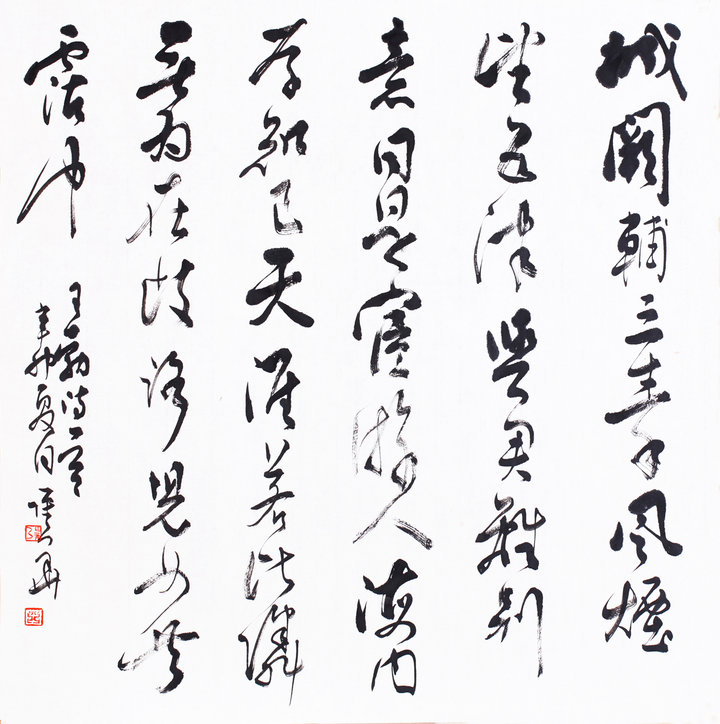 城闕輔三秦風煙
望五津與君離別
意同是宦游人海内
存知己天涯若比鄰
無为在歧路兒女共
霑巾
王勃诗一首
辛卯夏日